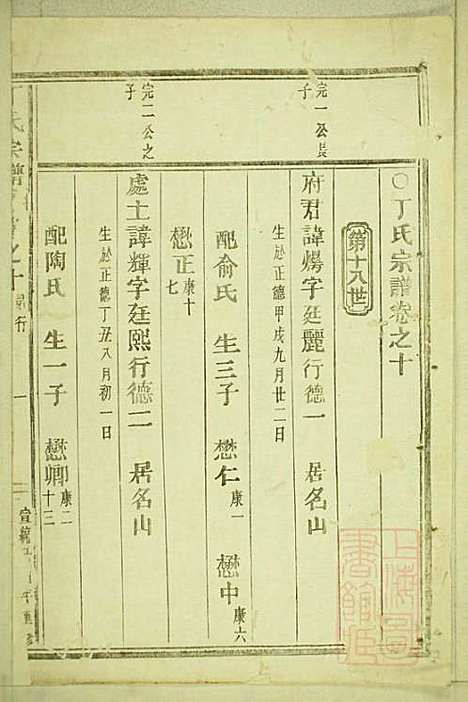 〇丁氏宗譜卷之十
第十八世
完一公長子
府君諱燽字廷麗行德一　居名山
生於正德甲戌九月廿二日
配俞氏　生三子　懋仁康一　懋中康六
懋正康十七
完二公之子
處士諱輝字廷熙行德二　居名山
生於正德丁丑八月初一日
配陶氏　生一子　懋卿康二十三
丁氏宗譜　卷之十　行　一　宣統
上海圖書館藏